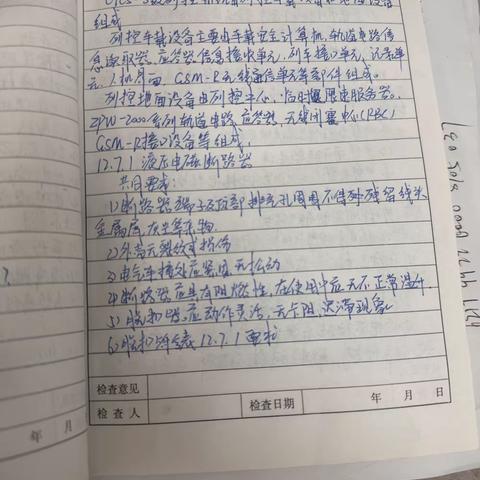 组成
列控车载设备主要由车载安全计算机,轨道电路信
息读取器,应答器信息接收单元,列车接口单元,记录单
元,人机界面,GSM-R无线通信单元等部件组成。
列控地面设备由列控中心,临时限速服务器,
ZPW-2000系列轨道电路,应答器,无线闭塞中心(RBC)
GSM-R接口设备等组成,
12.7.1 液压电磁断路器
共同要求:
1)断路器端子及顶部排气孔周围不得残留线头
金属屑,灰尘等异物.
2)外壳无裂纹或损伤
3)电气连接处应紧固,无松动
4)断路器应具有阻燃性,在使用中应无不正常温升
5)脱扣器应动作灵活,无卡阻,迟滞现象
6)脱扣 12.7.1 要求
检查意见
检查人 检查日期 年 月 日
年 月